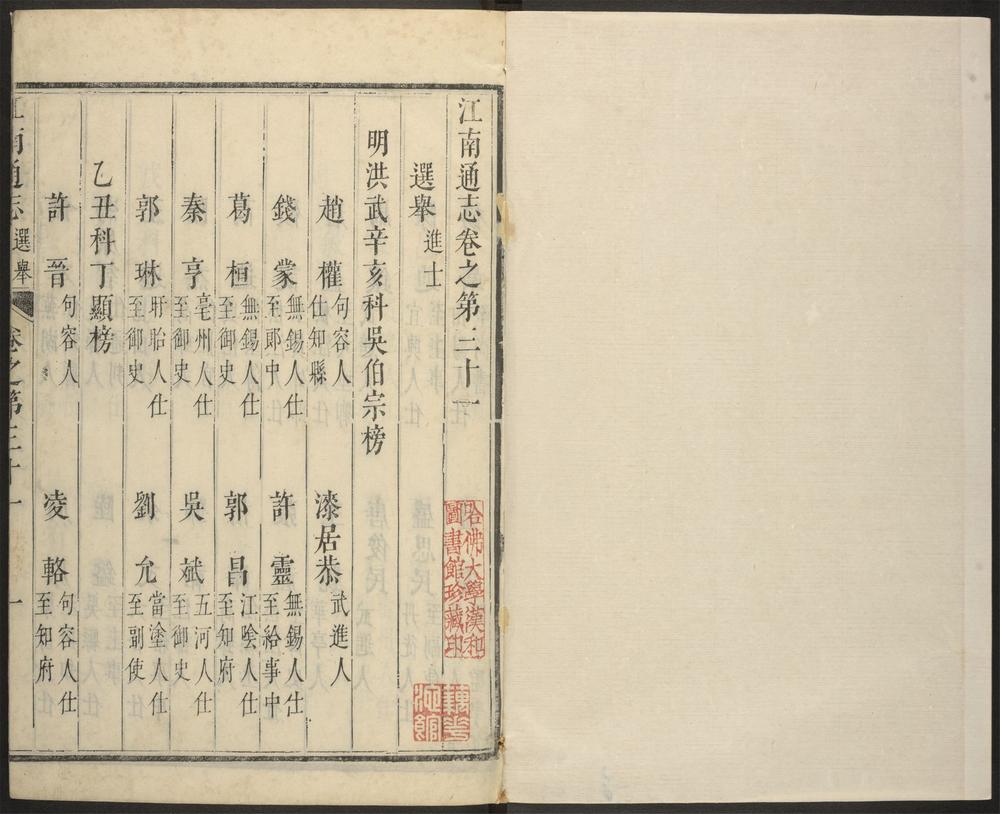 江南通志卷之第三十一
選舉 進士
明洪武辛亥科吳伯宗榜
趙權 句容人仕知縣 漆居恭 武進人
錢蒙 無錫人仕至郎中 許靈 無錫人仕至給事中
葛桓 無錫人仕至御史 郭昌 江陰人仕至知府
秦亨 亳州人仕至御史 吳斌 五河人仕至御史
郭琳 盱眙人仕至御史 劉允 當塗人仕至副使
乙丑科丁顯榜
許晉 句容人 凌輅 句容人仕至知府
江南通志 選舉 卷之第三十一 一
哈佛大學漢和圖書館珍藏印